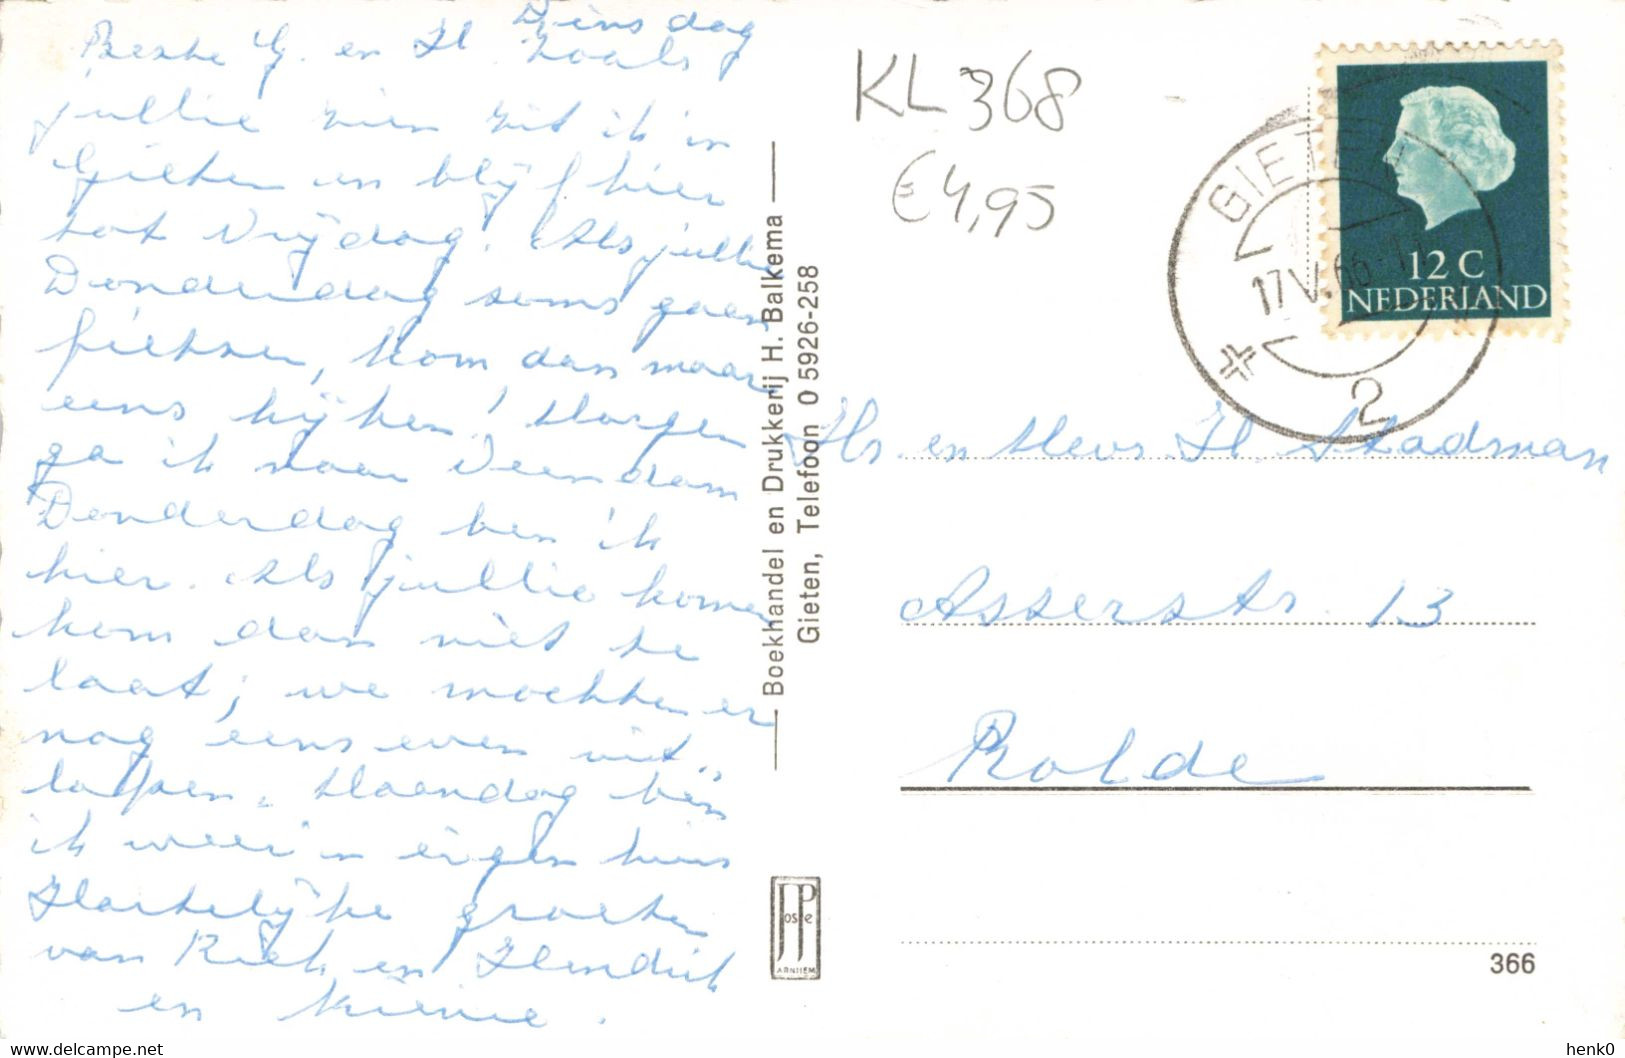 Dinsdag
Beste G. en H. Zoals
jullie zien zit ik in
Gieten en blijf hier
tot Vrijdag. Als jullie
Donderdag soms gaan
fietsen, kom dan maar
eens kijken! Morgen
ga ik naar Veendam
Donderdag ben ik
hier. Als jullie komen
kom dan niet te
laat; we mochten er
nog eens even uit
lopen. Maandag ben
ik weer in eigen huis
Hartelijke groeten
van Riek en Hendrik
en
Boekhandel en Drukkerij H. Balkema
Gieten, Telefoon 0 5926-258
JosPe
ARNHEM
KL 368
€4,95
GIETEN
17 V. 66
2
12 C
NEDERLAND
Hr. en Mevr. H. Stadman
Asserstr. 13
Rolde
366
henk0